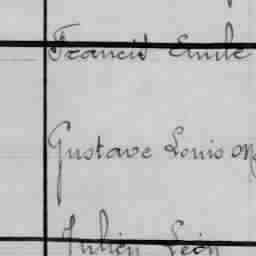 Francis Emile
Gustave Louis
Julien Léon